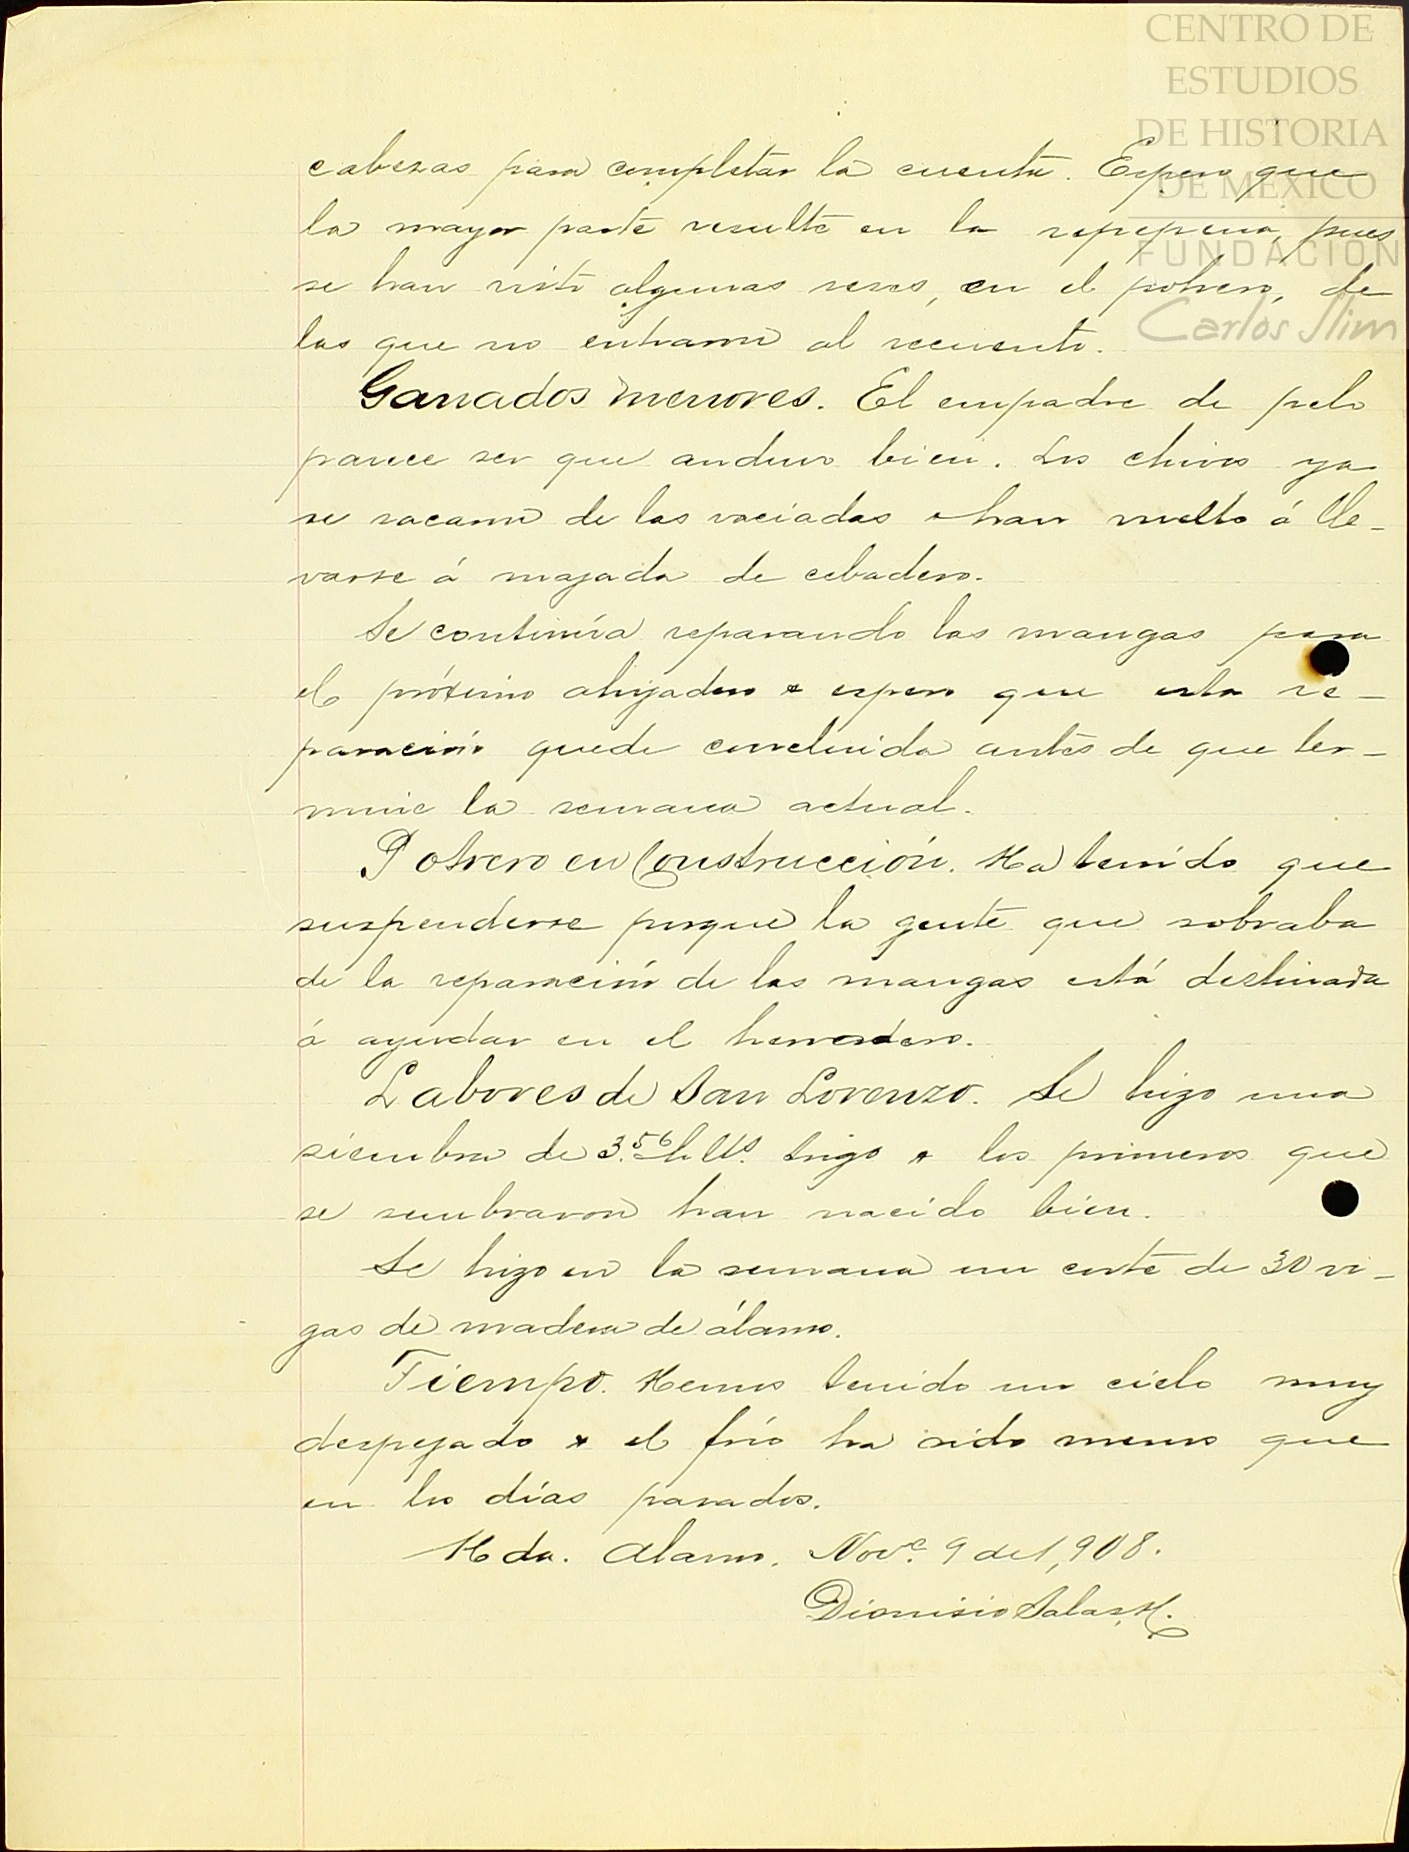 CENTRO DE
ESTUDIOS
DE HISTORIA
DE MÉXICO
FUNDACIÓN
Carlos Slim
cabezas para completar la cuenta. Espero que
la mayor parte resulte en la repepena, pues
se han visto algunas reses, en el potrero, de
las que no entraron al recuento.
Ganados menores. El empadre de pelo
parece ser que anduvo bien. Los chivos ya
se sacaron de las vaciadas & han vuelto á lle-
varse á majada de cebadero.
Se continúa reparando las mangas para
el próximo ahijadero & espero que esta re-
paración quede concluida antes de que ter-
mine la semana actual.
Potrero en Construcción. Ha tenido que
suspenderse porque la gente que sobraba
de la reparación de las mangas está destinada
á ayudar en el herradero.
Labores de San Lorenzo. Se hizo una
siembra de 3.56 hlts. trigo & los primeros que
se sembraron han nacido bien.
Se hizo en la semana un corte de 30 vi-
gas de madera de álamo.
Tiempo. Hemos tenido un cielo muy
despejado & el frío ha sido menos que
en los días pasados.
Hda. Alamo. Nove. 9 de 1,908.
Dionisio Salas H.